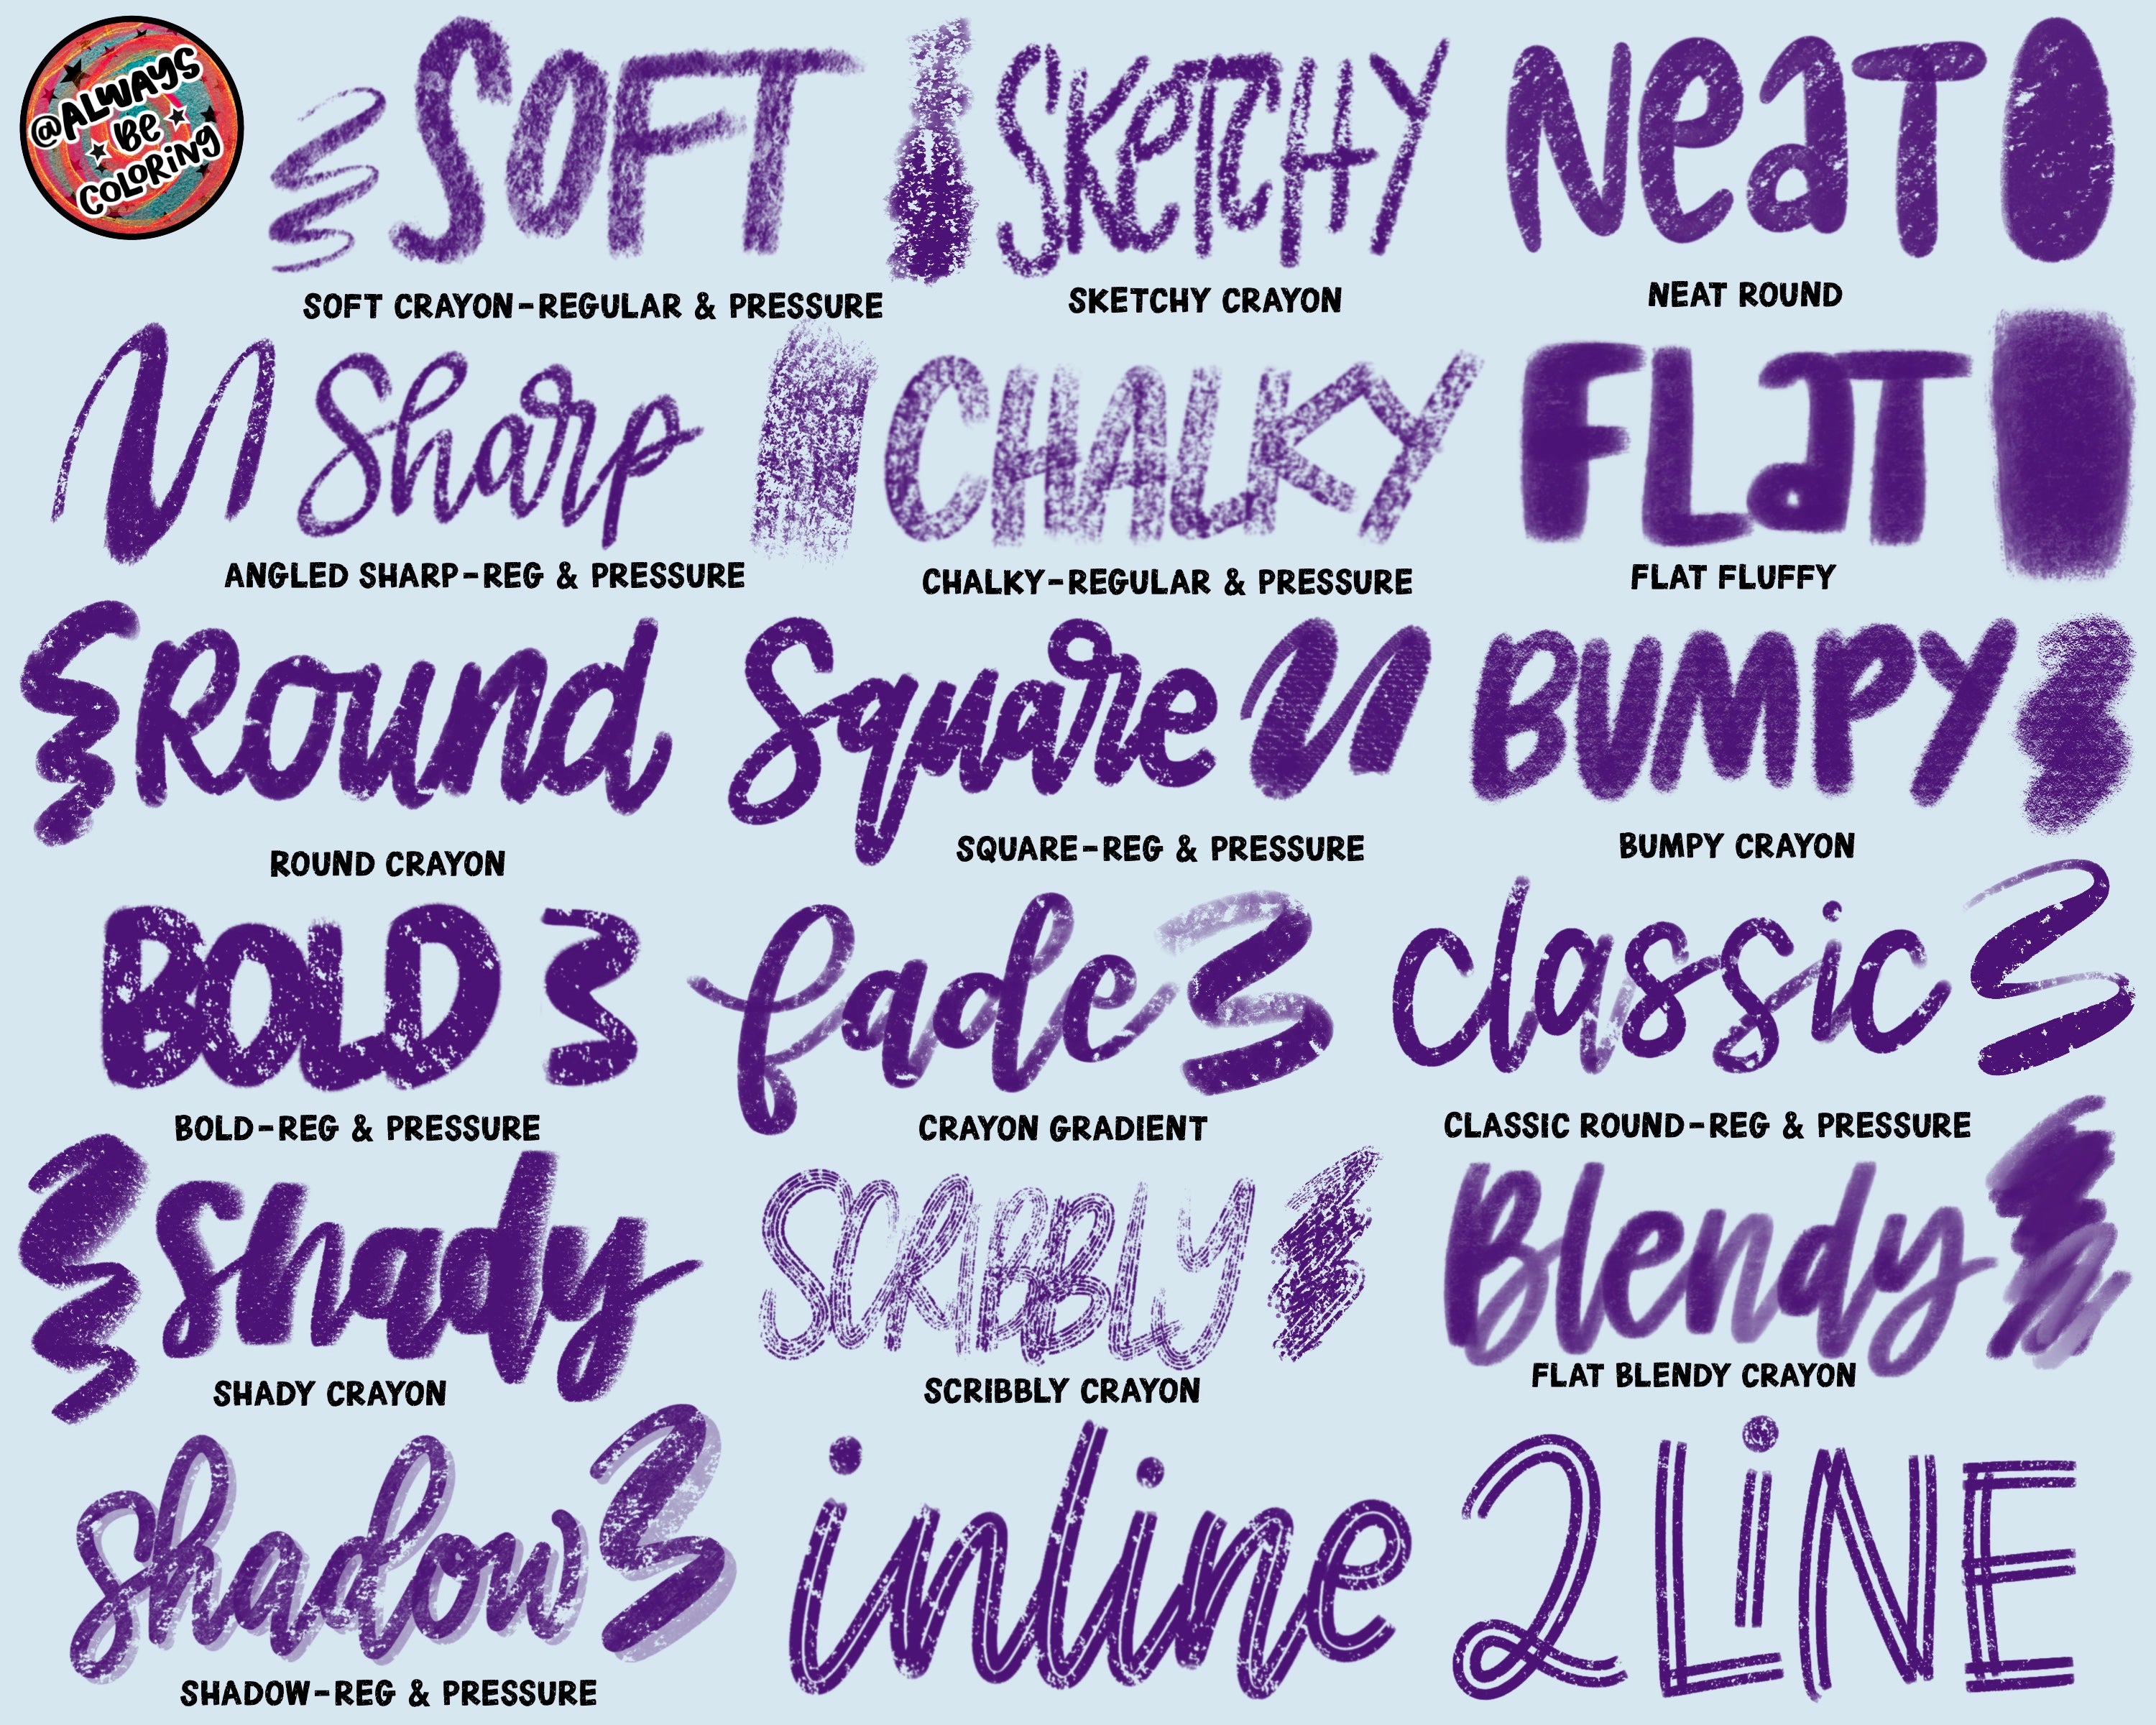 @ALWAYS
BE
COLORING
SOFT
SKETCHY
NEAT
SOFT CRAYON-REGULAR & PRESSURE
SKETCHY CRAYON
NEAT ROUND
Sharp
CHALKY
FLAT
ANGLED SHARP-REG & PRESSURE
CHALKY-REGULAR & PRESSURE
FLAT FLUFFY
Round
Square
BUMPY
ROUND CRAYON
SQUARE-REG & PRESSURE
BUMPY CRAYON
BOLD
fade
classic
BOLD-REG & PRESSURE
CRAYON GRADIENT
CLASSIC ROUND-REG & PRESSURE
Shady
SCRIBBLY
Blendy
SHADY CRAYON
SCRIBBLY CRAYON
FLAT BLENDY CRAYON
shadow
inline
2 LiNE
SHADOW-REG & PRESSURE